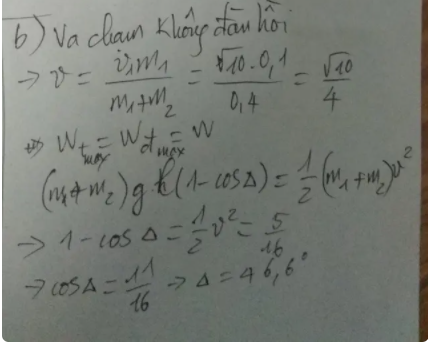 b) Va chạm không đàn hồi
→ v = v₁m₁/(m₁+m₂) = √10.0,1/0,4 = √10/4
W_tmax = W_đmax = W
(m₁+m₂)gl(1-cosΔ) = 1/2(m₁+m₂)v²
→ 1-cosΔ = 1/2v² = 5/16
→ cosΔ = 11/16 → Δ = 46,6°